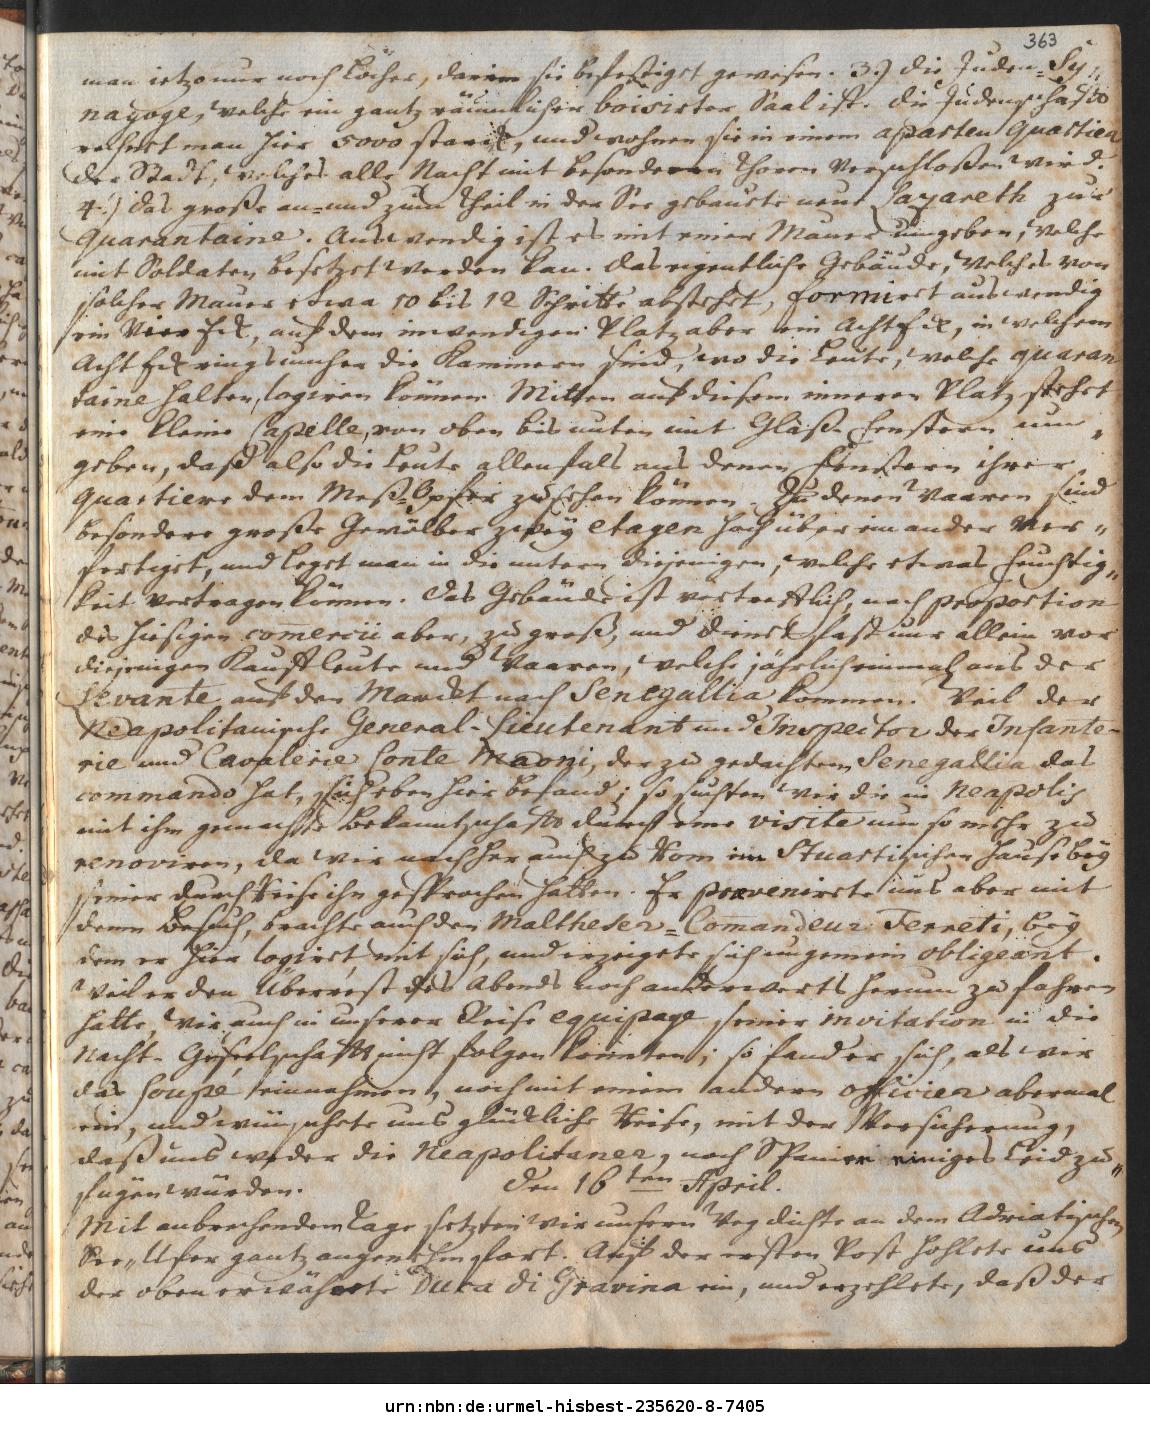 363
man ietzo nur noch Löcher, darinn sie befestigt gewesen. 3.) die Juden-Sy„
nagoge, welche ein gantz räumlicher boisirter Saal ist. Die Judenschafft
rechnet man hier 5000 starck, und wohnen sie in einem aparten Quartier
der Stadt, welches alle Nacht mit besonderen Thoren verschloßen wird.
4.) das große an- und zum Theil in der See gebauete neue Lazareth zur
Quarantaine. Auswendig ist es mit einer Mauer umgeben, welche
mit Soldaten besetzet werden kan. Das eigentliche Gebäude, welches von
solcher Mauer etwa 10 bis 12 Schritte abstehet, formiert auswendig
ein Vier Eck, auf dem inwendigen Platz aber ein Acht Eck, in welchem
Acht Eck ringsumher die Kammern sind, wo die Leute, welche quaran
taine halten, logiren können. Mitten auf diesem inneren Platz stehet
eine kleine Capelle, von oben bis unten mit Glaß-Fenstern um„
geben, daß also die Leute allenfals aus denen Fenstern ihrer
Quartiere dem Meß-Opfer zusehen können. Zu denen Waaren sind
besondere große Gewölber zwey etagen hoch über einander ver„
fertiget, und leget man in die untern diejenigen, welche etwas Feuchtig„
keit vertragen können. Das Gebäude ist vortrefflich, nach proportion
des hiesigen comercii aber, zu groß, und dienet fast nur allein vor
diejenigen Kauffleute und Waaren, welche jährlich einmal aus der
Levante auf den Marckt nach Senegallia kommen. Weil der
Neapolitanische General-Lieutenant und Inspector der Infante-
rie und Cavalerie Conte Maoni, der zu gedachtem Senegallia das
commando hat, sich eben hier befand; so suchten wir die in Neapolis
mit ihm gemachte Bekanntschafft durch eine visite um so mehr zu
renoviren, da wir nachher auch zu Rom im Stuartischen Hause bey
seiner durch Reise ihn gesprochen hatten. Er praevenirete uns aber mit
denn Besuch, brachte auch den Maltheser-Comandeur Ferreti, bey
dem er hier logiret, mit sich, und erzeigete sich ungemein obligeant.
Weil er den Überrest des Abends noch anderwerts herum zu fahren
hatte, wir auch in unserer Reise equipage seiner invitation in die
Nacht-Gesellschafft nicht folgen konnten; so fand er sich, als wir
das soupé einnahmen, noch mit einem andern officier abermal
ein, und wünschete uns glückliche Reise, mit der Versicherung,
daß uns weder die Neapolitaner, noch Spanier einiges Leid zu„
fügen würden.
Den 16ten April.
Mit anbrechendem Tage setzten wir unsern Weg dichte an dem Adriatischen
See„Ufer gantz angenehm fort. Auf der ersten Post hohlete uns
der oben erwähnte Duca di Gravina ein, und erzehlete, daß der
urn:nbn:de:urmel-hisbest-235620-8-7405